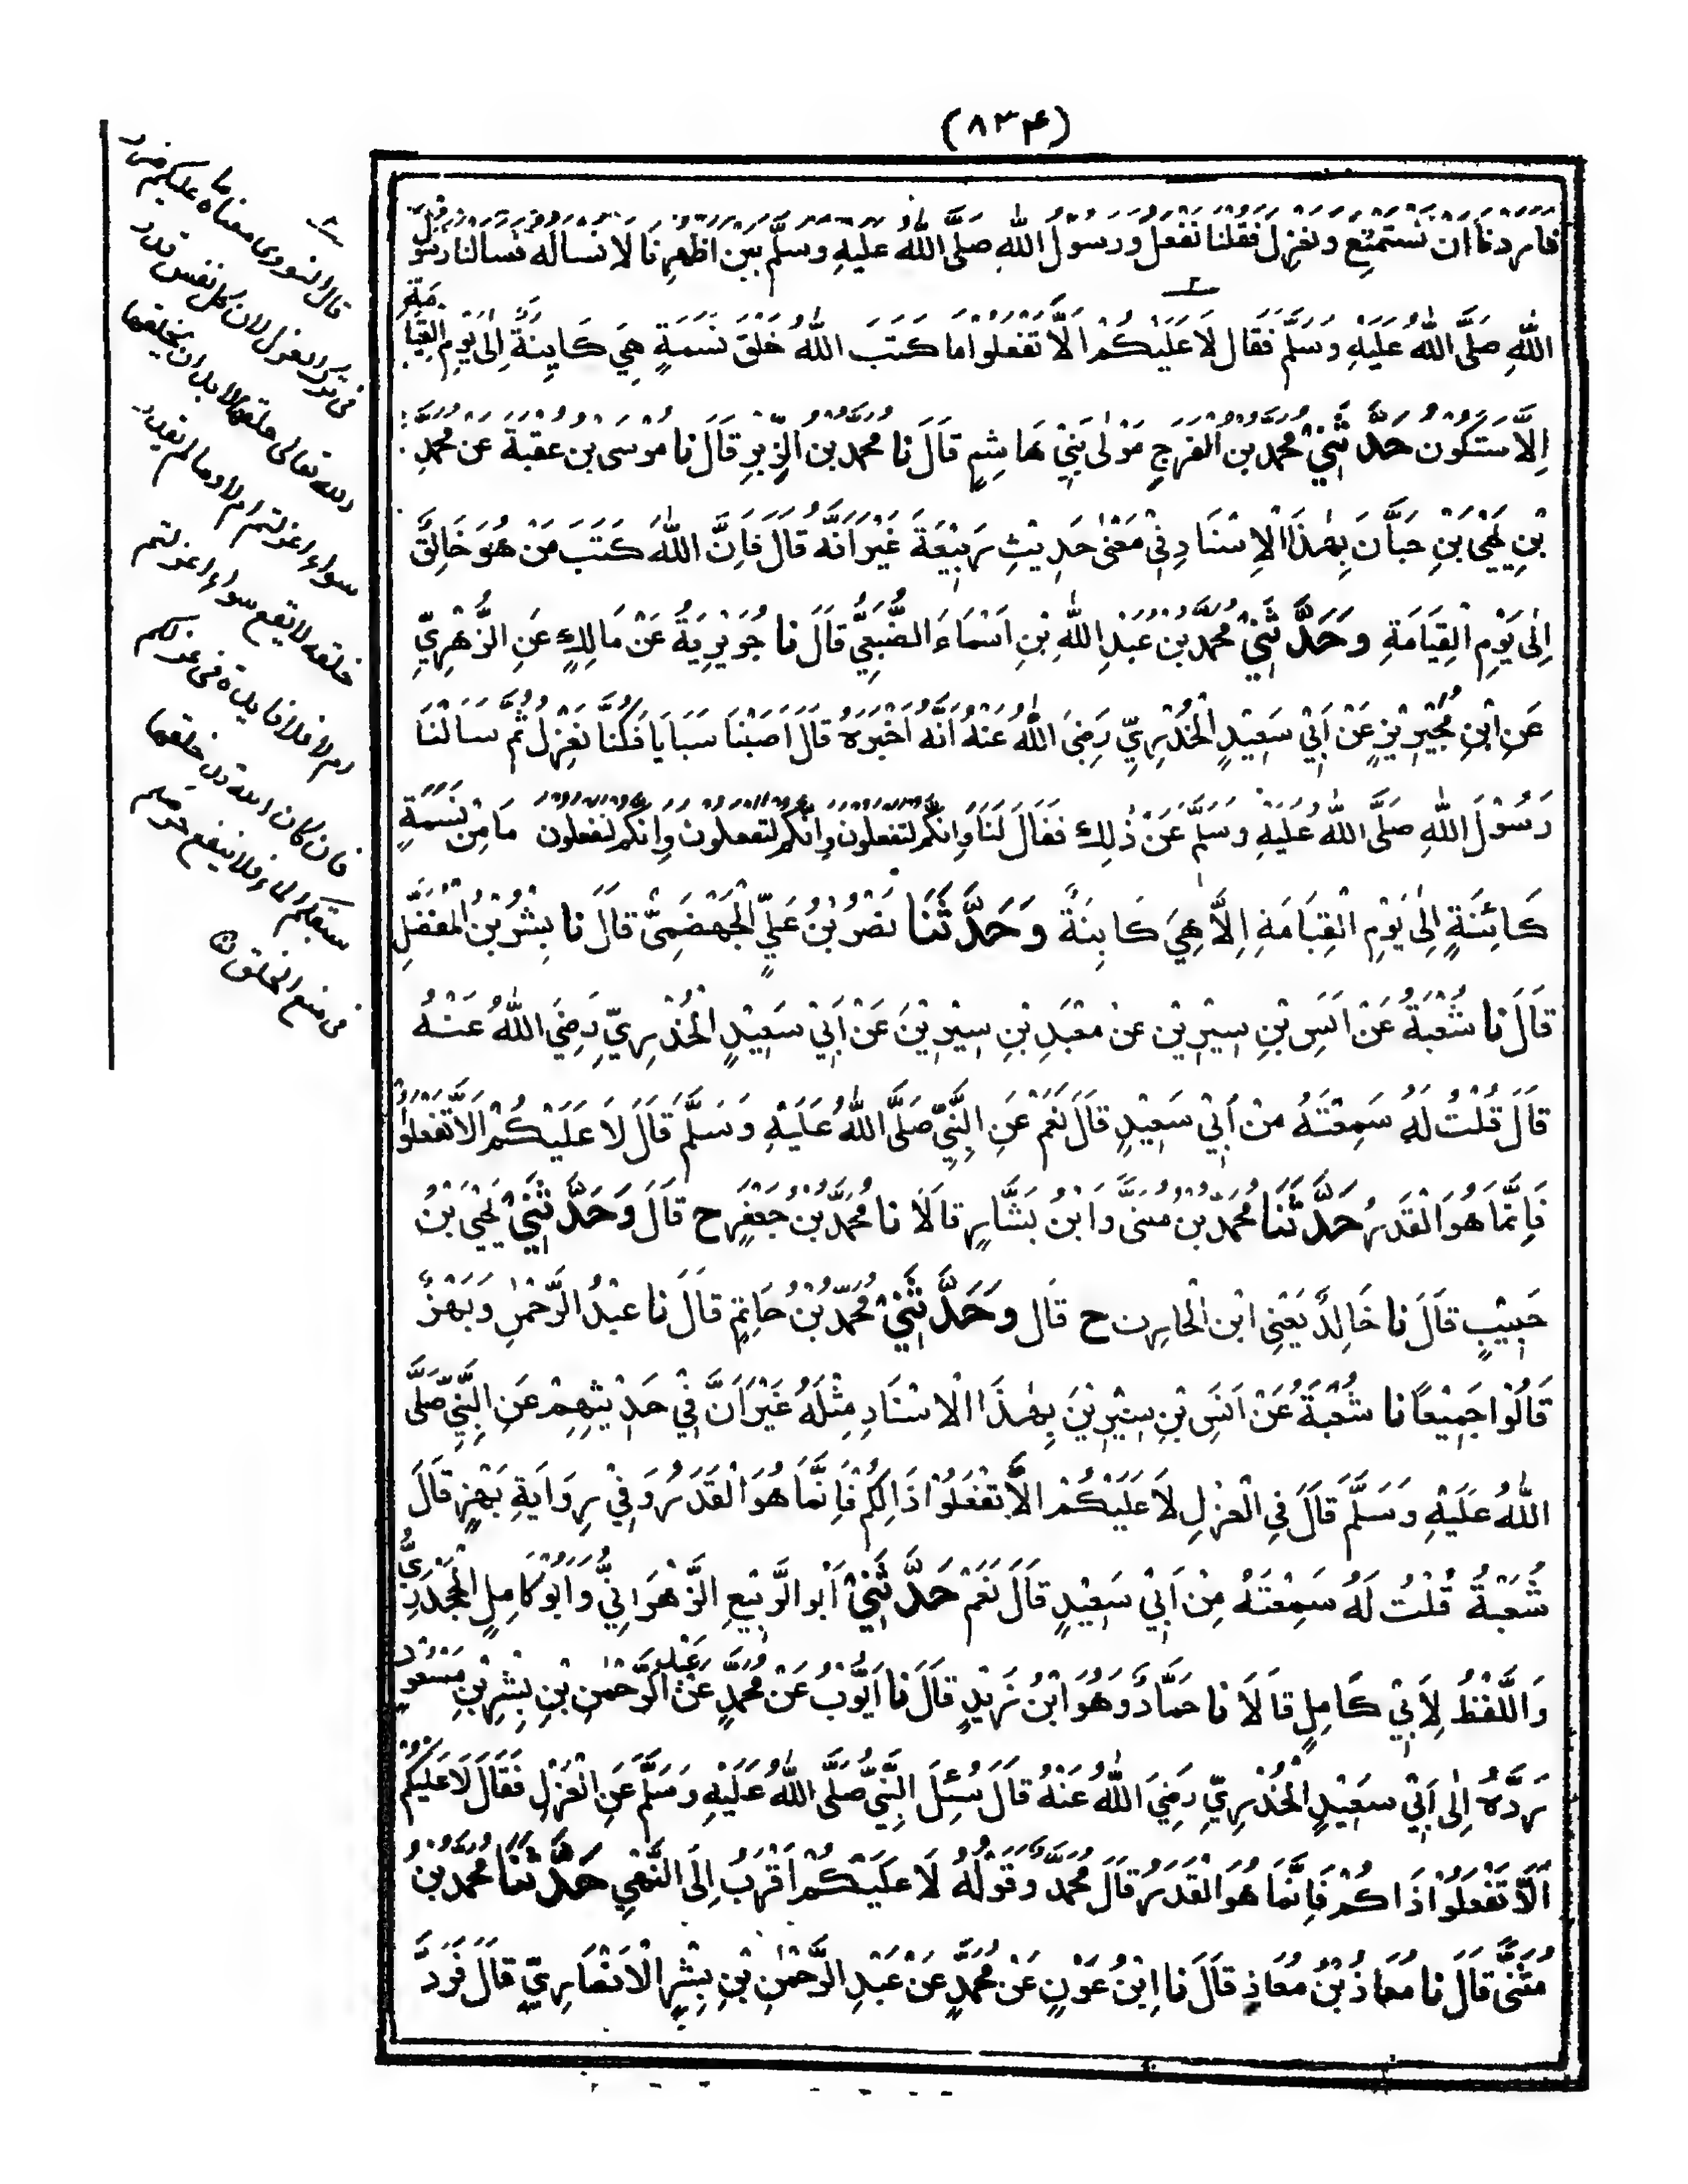 (٨٣۴)
فاردنا ان نستمتع ونعزل فقلنا نفعل ورسول الله صلى الله عليه وسلم بين اظهرنا لا نساله فسالنا رسول
الله صلى الله عليه وسلم فقال لا عليكم الا تفعلوا ما كتب الله خلق نسمة هي كاينة الى يوم القيامة
الا ستكون حدثني محمد بن الفرج مولى بني هاشم قال نا محمد بن الزبر قال نا موسى بن عقبة عن محمد
بن يحيى بن حبان بهذا الاسناد في معنى حديث ربيعة غير انه قال فان الله كتب من هو خالق
الى يوم القيامة وحدثني محمد بن عبد الله بن اسماء الضبعي قال نا جويرية عن مالك عن الزهري
عن ابن محيريز عن ابي سعيد الخدري رضي الله عنه انه اخبره قال اصبنا سبايا فكنا نعزل ثم سالنا
رسول الله صلى الله عليه وسلم عن ذلك فقال لنا وانكم لتفعلون وانكم لتفعلون وانكم لتفعلون ما من نسمة
كائنة الى يوم القيامة الا هي كاينة وحدثنا نصر بن علي الجهضمي قال نا بشر بن المفضل
قال نا شعبة عن انس بن سيرين عن معبد بن سيرين عن ابي سعيد الخدري رضي الله عنه
قال قلت له سمعته من ابي سعيد قال نعم عن النبي صلى الله عليه وسلم قال لا عليكم الا تفعلوا
فانما هو القدر حدثنا محمد بن مثنى وابن بشار قالا نا محمد بن جعفر ح قال وحدثني يحيى بن
حبيب قال نا خالد يعني ابن الحارث ح قال وحدثني محمد بن حاتم قال نا عبد الرحمن وبهز
قالوا جميعا نا شعبة عن انس بن سيرين بهذا الاسناد مثله غير ان في حديثهم عن النبي صلى
الله عليه وسلم قال في العزل لا عليكم الا تفعلوا ذالكم فانما هو القدر وفي رواية بهز قال
شعبة قلت له سمعته من ابي سعيد قال نعم حدثني ابو الربيع الزهراني وابو كامل الجحدري
واللفظ لابي كامل قالا نا حماد وهو ابن زيد قال نا ايوب عن محمد عن عبد الرحمن بن بشر بن مسعود
رده الى ابي سعيد الخدري رضي الله عنه قال سئل النبي صلى الله عليه وسلم عن العزل فقال لا عليكم
الا تفعلوا ذاكم فانما هو القدر قال محمد وقوله لا عليكم اقرب الى النهي حدثنا محمد بن
مثنى قال نا معاذ بن معاذ قال نا ابن عون عن محمد عن عبد الرحمن بن بشر الانصاري قال فرد
قال النووي معناه ما عليكم ضرر
في ترك العزل لان كل نفس قدر
الله تعالى خلقها لا بد ان يخلقها
سواء اعزلتم ام لا وما لم يقدر
خلقه لا يقع سواء اعزلتم
ام لا فلا فايدة في عزلكم
فان كان الله قدر خلقها
سبقكم الماء فلا ينفع حرصكم
في منع الخلق